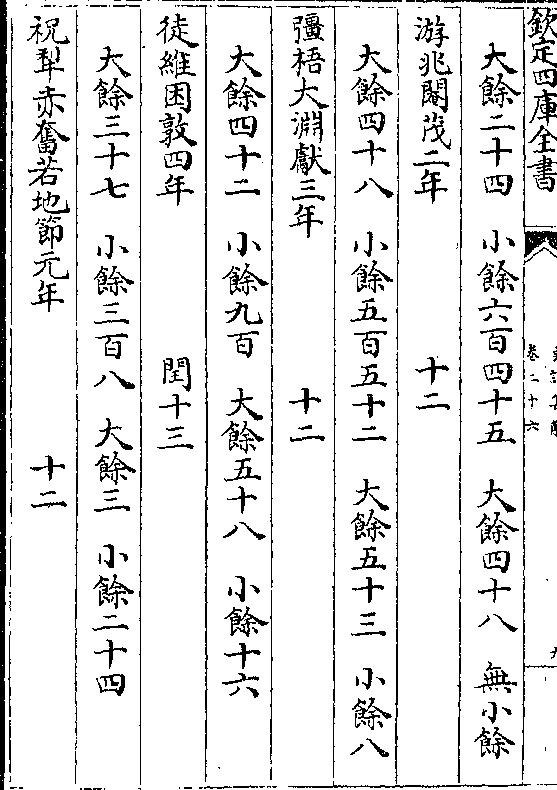 欽定四庫全書
卷二十六
大餘二十四 小餘六百四十五 大餘四十八 無小餘
游兆閹茂二年 十二
大餘四十八 小餘五百五十二 大餘五十三 小餘八
彊梧大淵獻三年 十二
大餘四十二 小餘九百 大餘五十八 小餘十六
徒維困敦四年 閏十三
大餘三十七 小餘三百八 大餘三 小餘二十四
祝犁赤奮若地節元年 十二